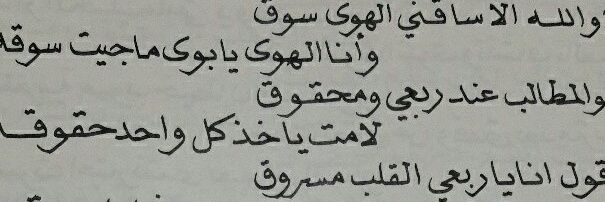 والله الا ساقني الهوى سوق
وأنا الهوى يابوى ما جيت سوقه
والمطالب عند ربعي ومحقوق
لامت ياخذ كل واحد حقوقه
قول انا ياربعي القلب مسروق